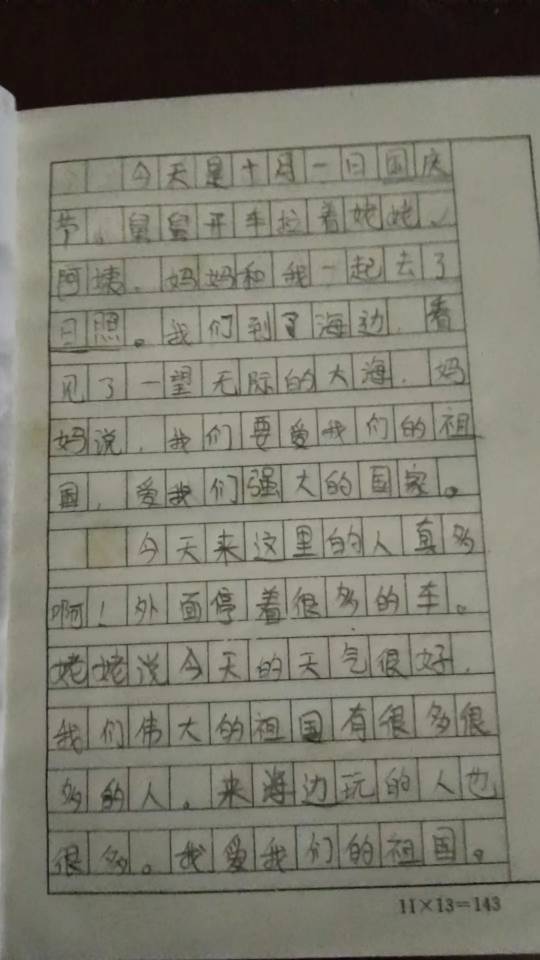 今天是十月一日国庆
节。舅舅开车拉着姥姥、
阿姨、妈妈和我一起去了
日照。我们到了海边，看
见了一望无际的大海，妈
妈说，我们要爱我们的祖
国，爱我们强大的国家。
今天来这里的人真多
啊！外面停着很多的车。
姥姥说今天的天气很好，
我们伟大的祖国有很多很
多的人。来海边玩的人也
很多。我爱我们的祖国。
11×13=143